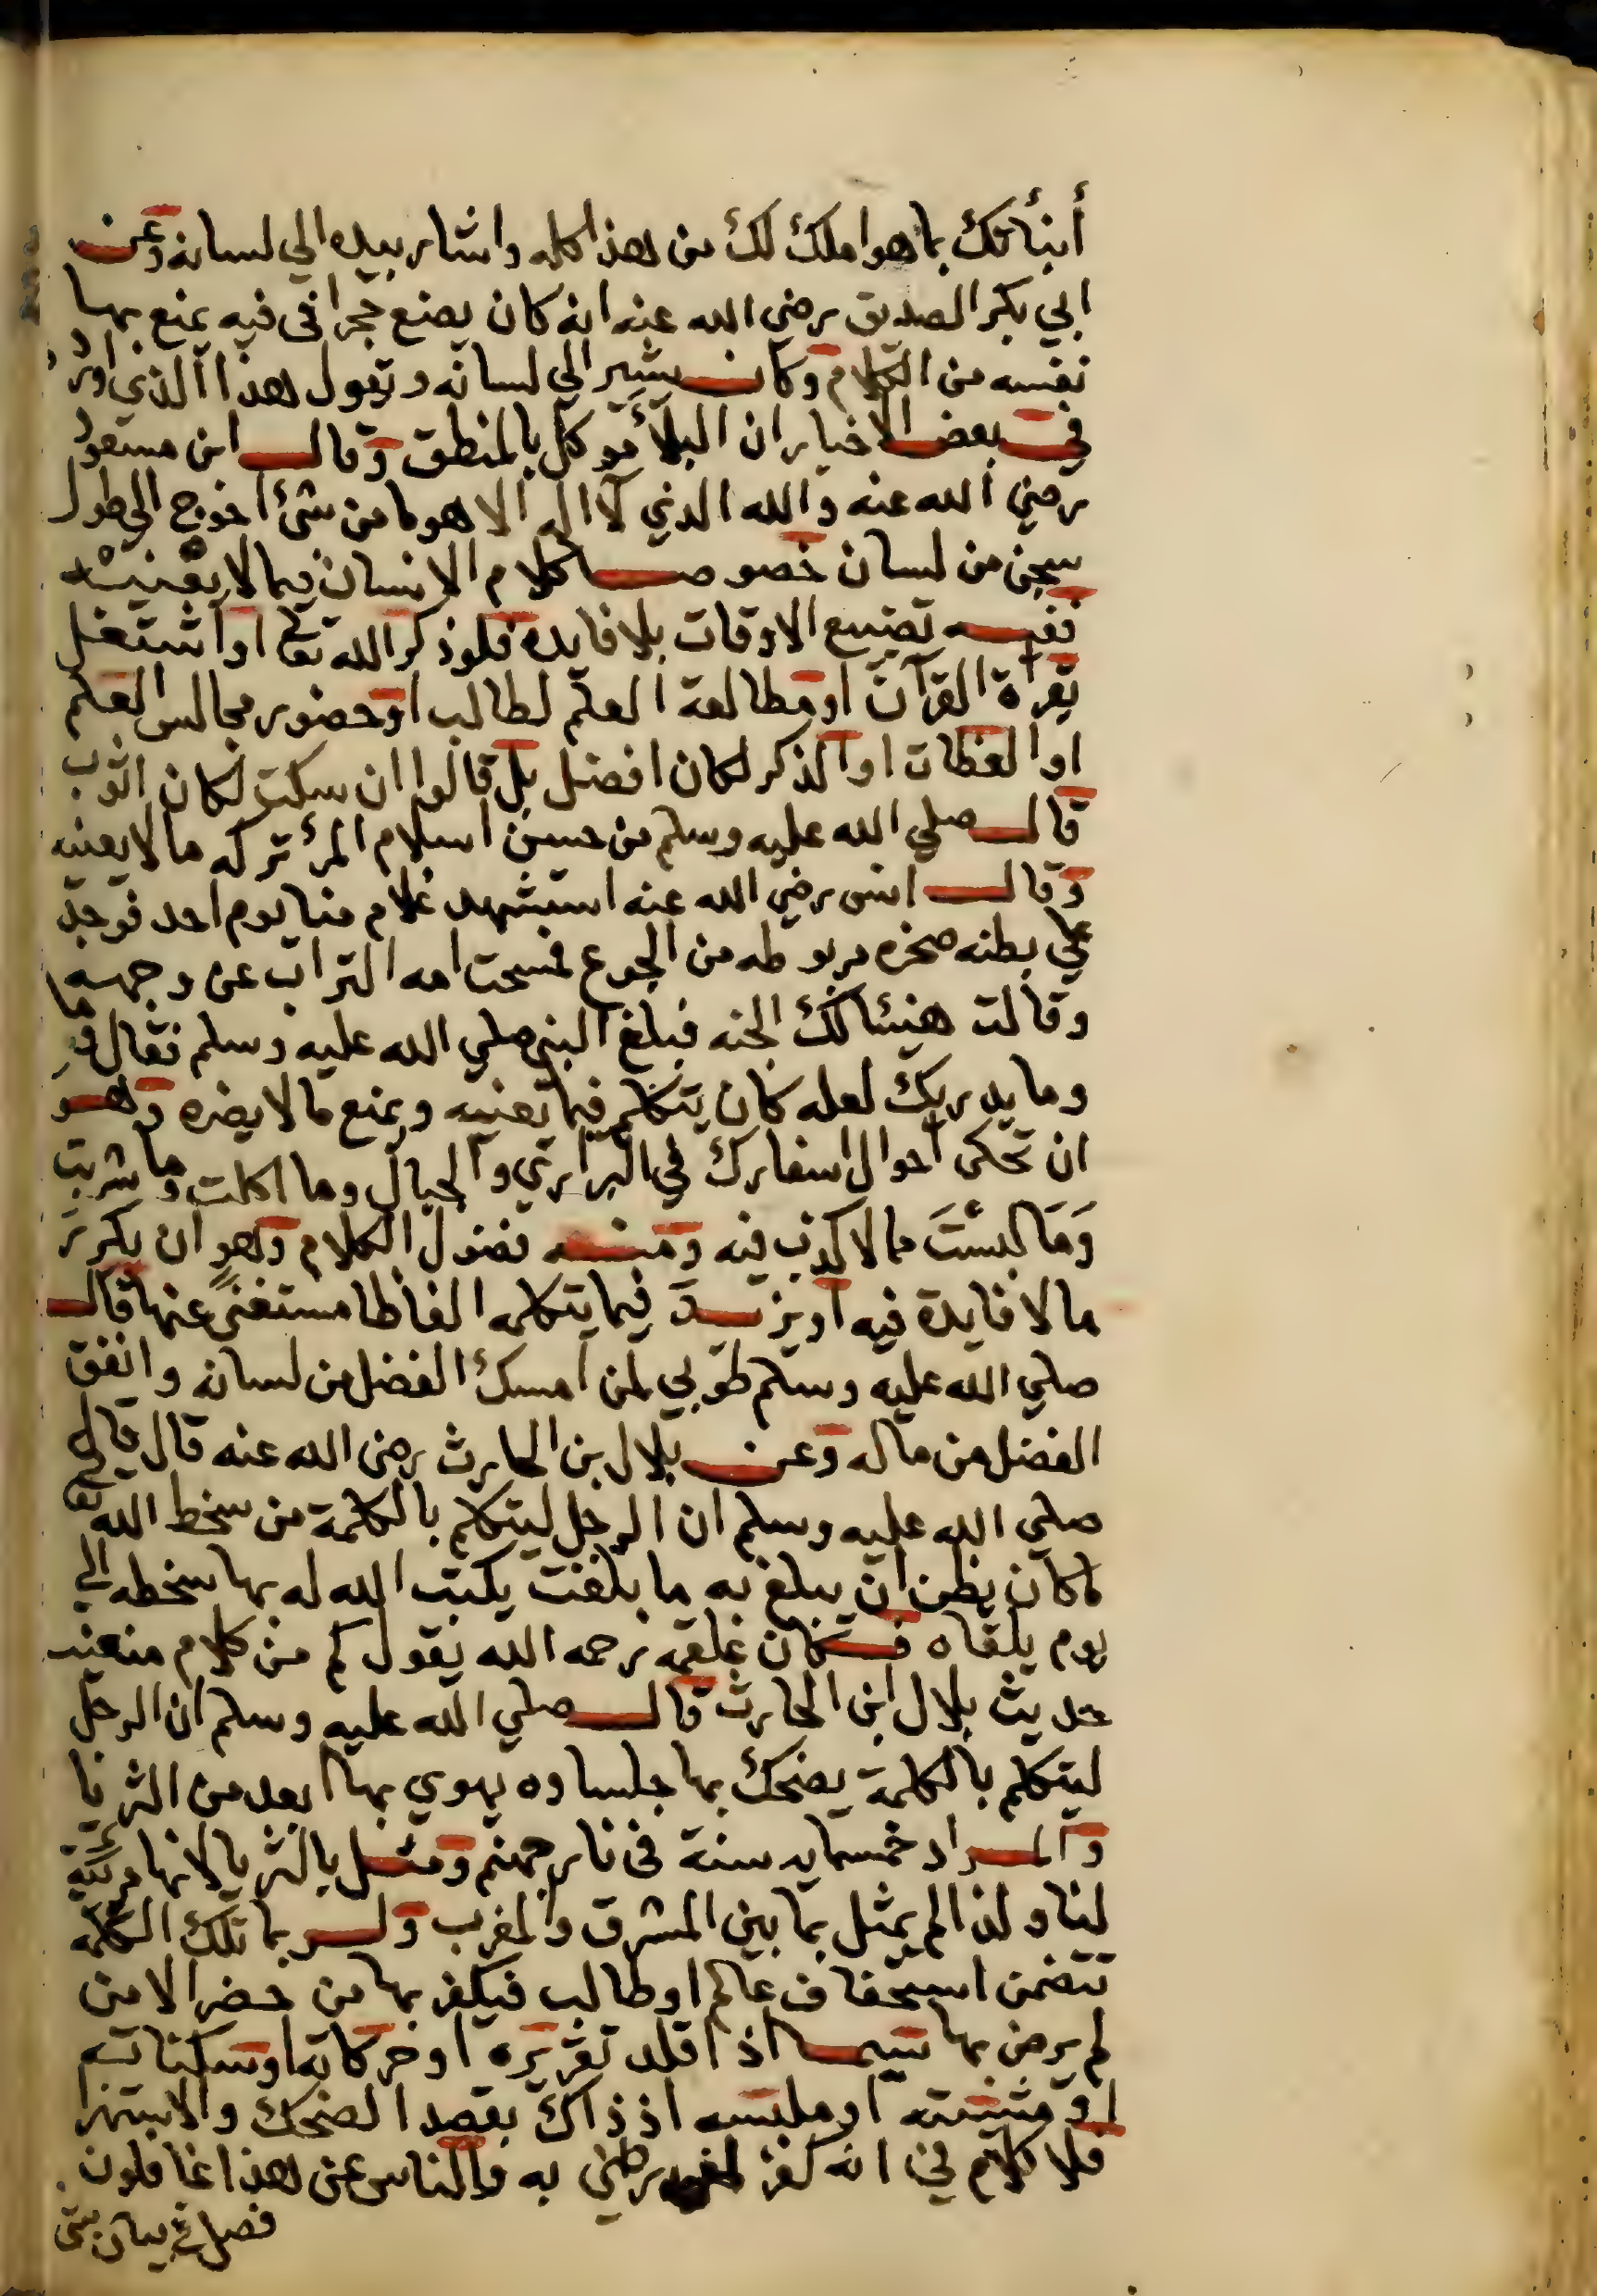 أنبأتك بما هو املك لك من هذا كله واشار بيده الي لسانه وعن
ابي بكر الصديق رضي الله عنه انه كان يضع حجرا في فيه يمنع بها
نفسه من الكلام وكان يشير الي لسانه ويقول هذا الذي اورد
في بعض الاخبار ان البلاء موكل بالمنطق وقال ابن مسعود
رضي الله عنه والله الذي لا اله الا هو ما من شئ احوج الي طول
سجن من لسان خصوصا كلام الانسان فيما لا يعنيه
ففيه تضييع الاوقات بلا فايده فلو ذكر الله تعالى او اشتغل
بقرأة القرآن او مطالعة العلم لطالب او حضور مجالس العلم
او العظات او الذكر لكان افضل بل قالوا ان سكت لكان اثوب
قال صلي الله عليه وسلم من حسن اسلام المرء تركه ما لا يعنيه
وقال انس رضي الله عنه استشهد غلام منا يوم احد فوجد
علي بطنه صخره مربوطه من الجوع فمسحت امه التراب عن وجهه
وقالت هنيئا لك الجنه فبلغ النبي صلي الله عليه وسلم فقال لها
وما يدريك لعله كان يتكلم فيما يعنيه ويمنع ما لا يضره وهو
ان تحكى احوال اسفارك في البراري والجبال وما اكلت وما شربت
وَمَا لبستَ مما لا كذب فيه ومنه فضول الكلام وهو ان يكرر
ما لا فايدة فيه او يزيد فيما يتكلمه الفاظا مستغنىً عنها قال
صلي الله عليه وسلم طوبي لمن امسك الفضل من لسانه وانفق
الفضل من ماله وعن بلال بن الحارث رضي الله عنه قال قال
صلي الله عليه وسلم ان الرجل ليتكلم بالكلمة من سخط الله تعالى
ما كان يظن ان يبلغ به ما بلغت يكتب الله له بها سخطه الي
يوم يلقاه فكان علقمه رحمه الله يقول كم من كلام منعنيه
حديث بلال ابن الحارث قال صلي الله عليه وسلم ان الرجل
ليتكلم بالكلمة يضحك بها جلساوه يهوي بها ابعد من الثريا
والمراد خمسمايه سنة في نار جهنم ومثل بالثريا لانها مرئية
لنا ولذا لم يمثل بما بين المشرق والمغرب ولربما تلك الكلمه
تتضمن استخفاف عالم او طالب فيكفر بها من حضر الا من
لم يرض بها سيما اذا قلد تقريره او حركاته او سكناته
او مشيته او ملبسه اذ ذاك بقصد الضحك والاستهزا
فلا كلام في انه كفر لمن رضي به والناس عن هذا غافلون
فصل في بيان